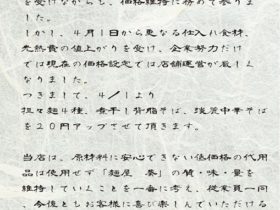 を受けながらも、価格維持に務めて参りま
した。
しかし、4月1日から更なる仕入れ食材、
光熱費の値上がりを受け、企業努力だけ
では現在の価格設定では店舗運営が厳しく
なりました。
つきまして、4/1より
担々麺4種、煮干し背脂そば、淡麗中華そば
を20円アップさせて頂きます。
当店は、原材料に安心できない低価格の代用
品は使用せず「麺屋 葵」の質・味・量を
維持していくことを一番に考え、従業員一同
、今後ともお客様に喜び楽しんでいただける